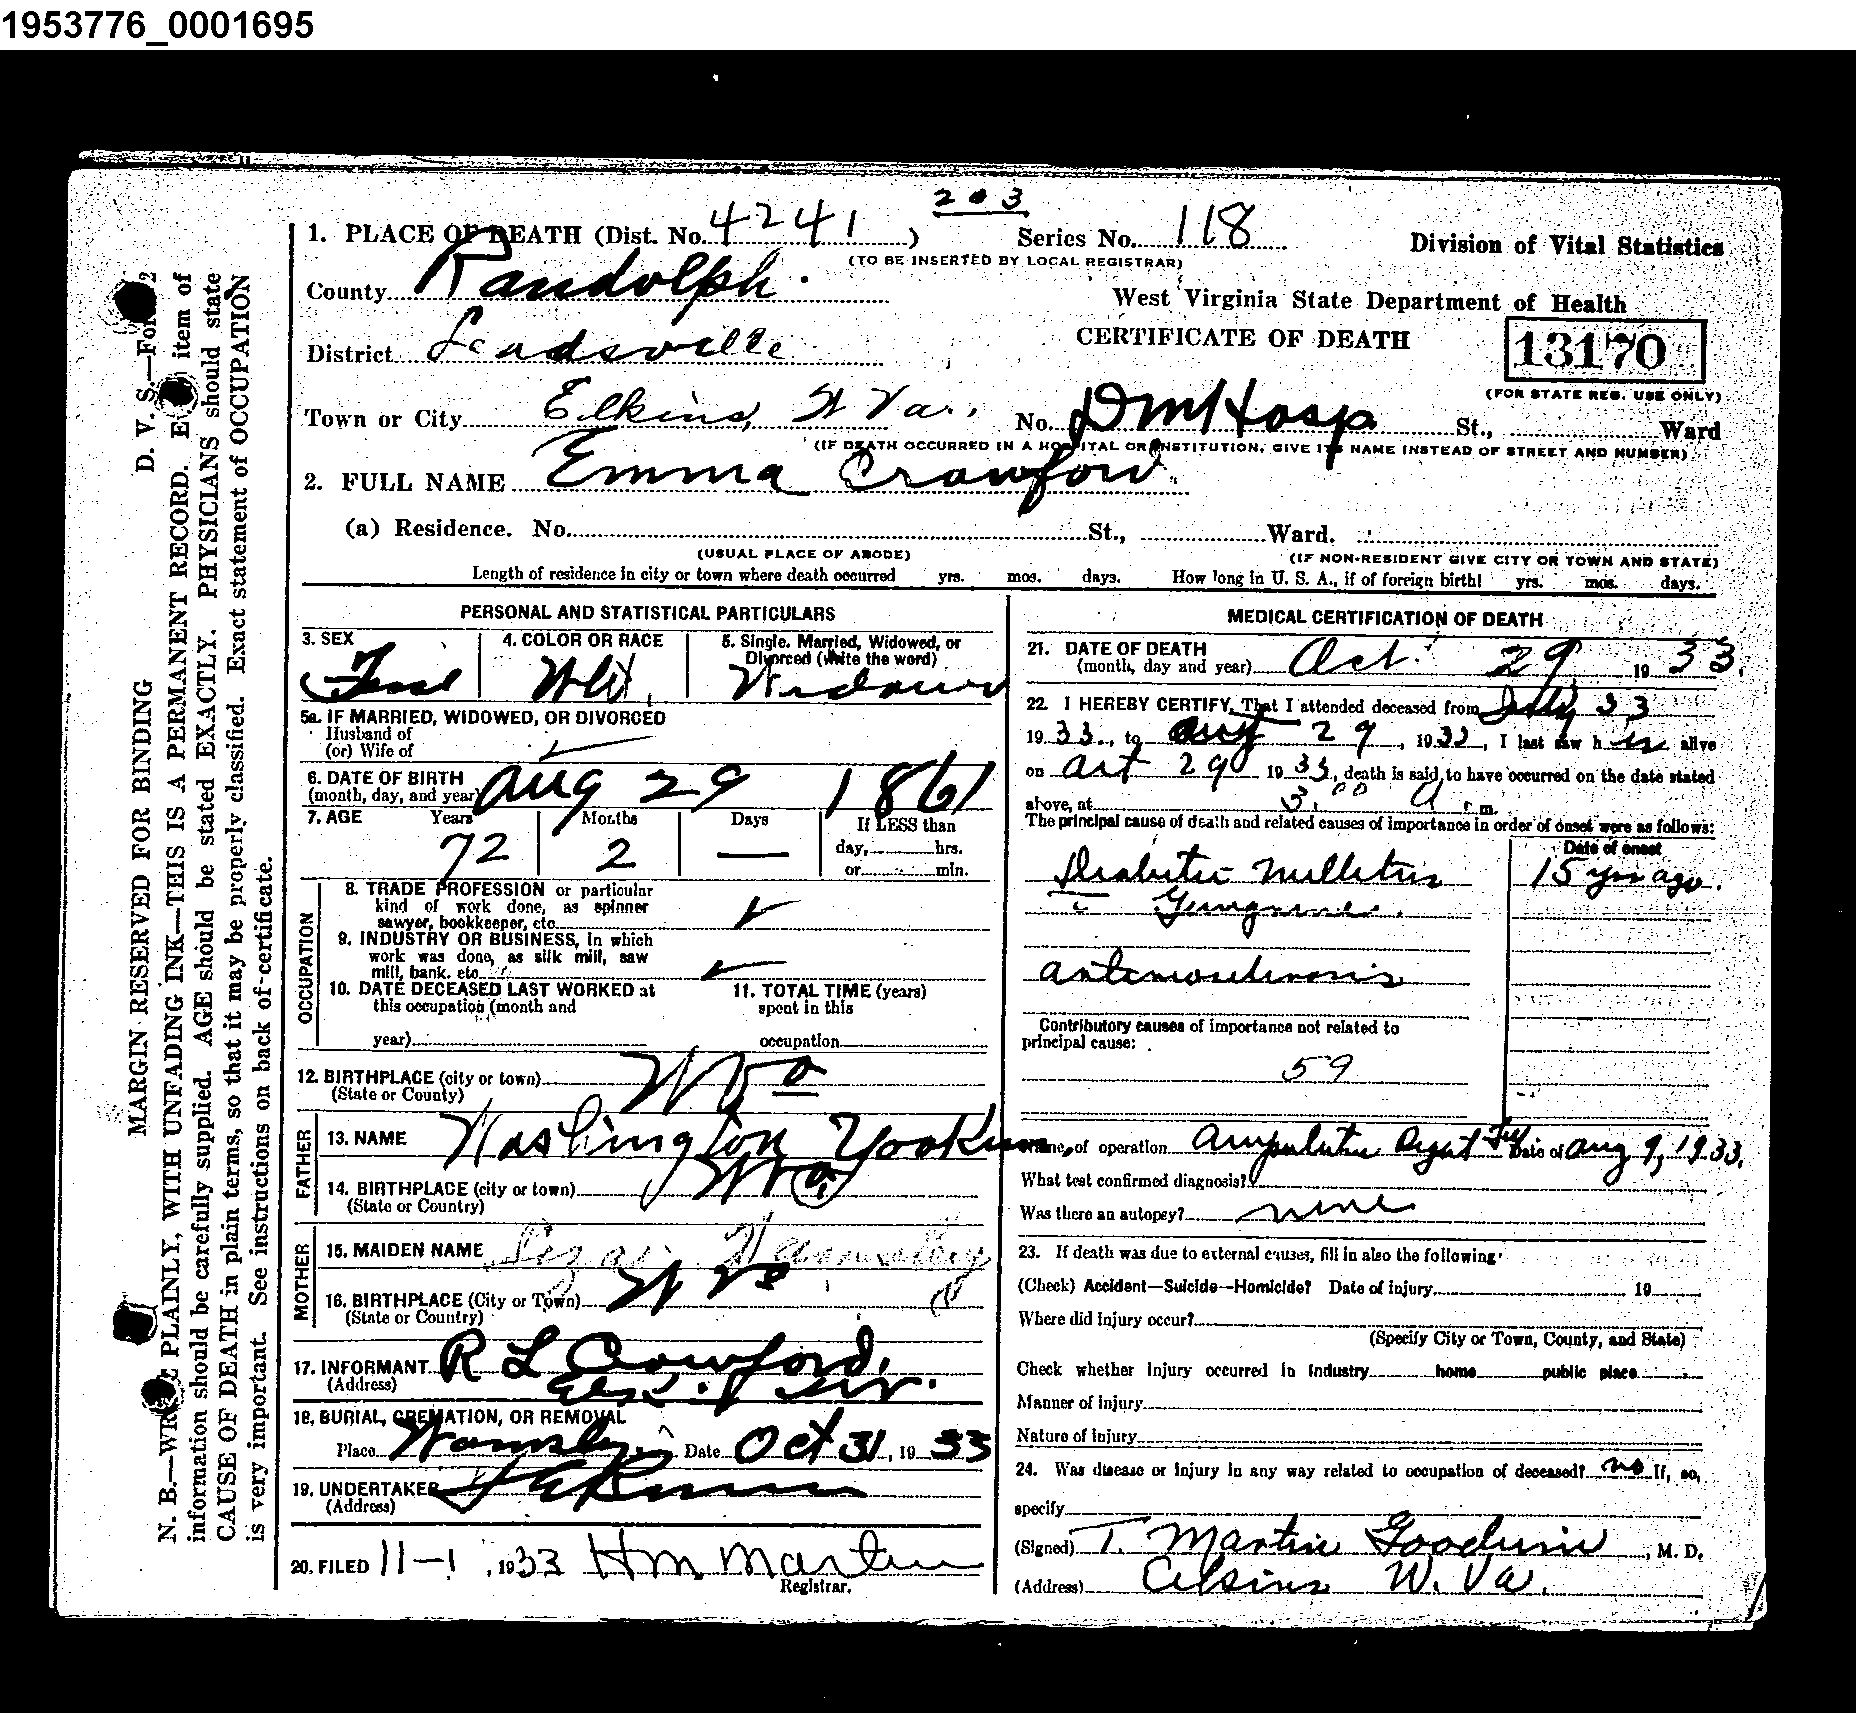 1953776_0001695
203
1. PLACE OF DEATH (Dist. No. 4241) Series No. 118 Division of Vital Statistics
(TO BE INSERTED BY LOCAL REGISTRAR)
County Randolph West Virginia State Department of Health
District Leadsville CERTIFICATE OF DEATH 13170
(FOR STATE REG. USE ONLY)
Town or City Elkins, W Va. No. DM Hosp St., Ward
(IF DEATH OCCURRED IN A HOSPITAL OR INSTITUTION, GIVE ITS NAME INSTEAD OF STREET AND NUMBER)
2. FULL NAME Emma Crawford
(a) Residence. No. St., Ward.
(USUAL PLACE OF ABODE) (IF NON-RESIDENT GIVE CITY OR TOWN AND STATE)
Length of residence in city or town where death occurred yrs. mos. days. How long in U. S. A., if of foreign birth? yrs. mos. days.
PERSONAL AND STATISTICAL PARTICULARS
3. SEX 4. COLOR OR RACE 5. Single. Married, Widowed, or
Divorced (write the word)
Widow
5a. IF MARRIED, WIDOWED, OR DIVORCED
Husband of
(or) Wife of
6. DATE OF BIRTH
(month, day, and year) Aug 29 1861
7. AGE Years Months Days If LESS than
72 2 — day, hrs.
or min.
OCCUPATION
8. TRADE PROFESSION or particular
kind of work done, as spinner
sawyer, bookkeeper, etc.
9. INDUSTRY OR BUSINESS, in which
work was done, as silk mill, saw
mill, bank. etc.
10. DATE DECEASED LAST WORKED at 11. TOTAL TIME (years)
this occupation (month and spent in this
year) occupation
12. BIRTHPLACE (city or town) W Va
(State or County)
FATHER
13. NAME Washington Yookum
14. BIRTHPLACE (city or town) W Va
(State or Country)
MOTHER
15. MAIDEN NAME Wamsley
16. BIRTHPLACE (City or Town) W Va
(State or Country)
17. INFORMANT R L Crawford,
(Address)
18. BURIAL, CREMATION, OR REMOVAL
Place Wamsley Date Oct 31, 1933
19. UNDERTAKER
(Address)
20. FILED 11-1, 1933 H M Martin
Registrar.
MEDICAL CERTIFICATION OF DEATH
21. DATE OF DEATH
(month, day and year) Oct. 29, 1933.
22. I HEREBY CERTIFY, That I attended deceased from July 23
1933., to 29, 1933, I last saw h er alive
on Oct 29 1933, death is said to have occurred on the date stated
above, at 3:00 a. m.
The principal cause of death and related causes of importance in order of onset were as follows:
Date of onset
Diabetis Mellitus 15 yrs ago.
c Gangrene.
Arteriosclerosis
Contributory causes of importance not related to
principal cause:
59
Name of operation Amputation Right Date of Aug 9, 1933.
What test confirmed diagnosis?
Was there an autopsy? none
23. If death was due to external causes, fill in also the following:
(Check) Accident—Suicide—Homicide? Date of injury 19
Where did injury occur?
(Specify City or Town, County, and State)
Check whether injury occurred in industry home public place
Manner of injury
Nature of injury
24. Was disease or injury in any way related to occupation of deceased? no If, so,
specify
(Signed) T. Martin Goodwin, M. D.
(Address) Elkins W. Va.
MARGIN RESERVED FOR BINDING D. V. S.—
N. B.—WRITE PLAINLY, WITH UNFADING INK—THIS IS A PERMANENT RECORD. Every item of
information should be carefully supplied. AGE should be stated EXACTLY. PHYSICIANS should state
CAUSE OF DEATH in plain terms, so that it may be properly classified. Exact statement of OCCUPATION
is very important. See instructions on back of certificate.